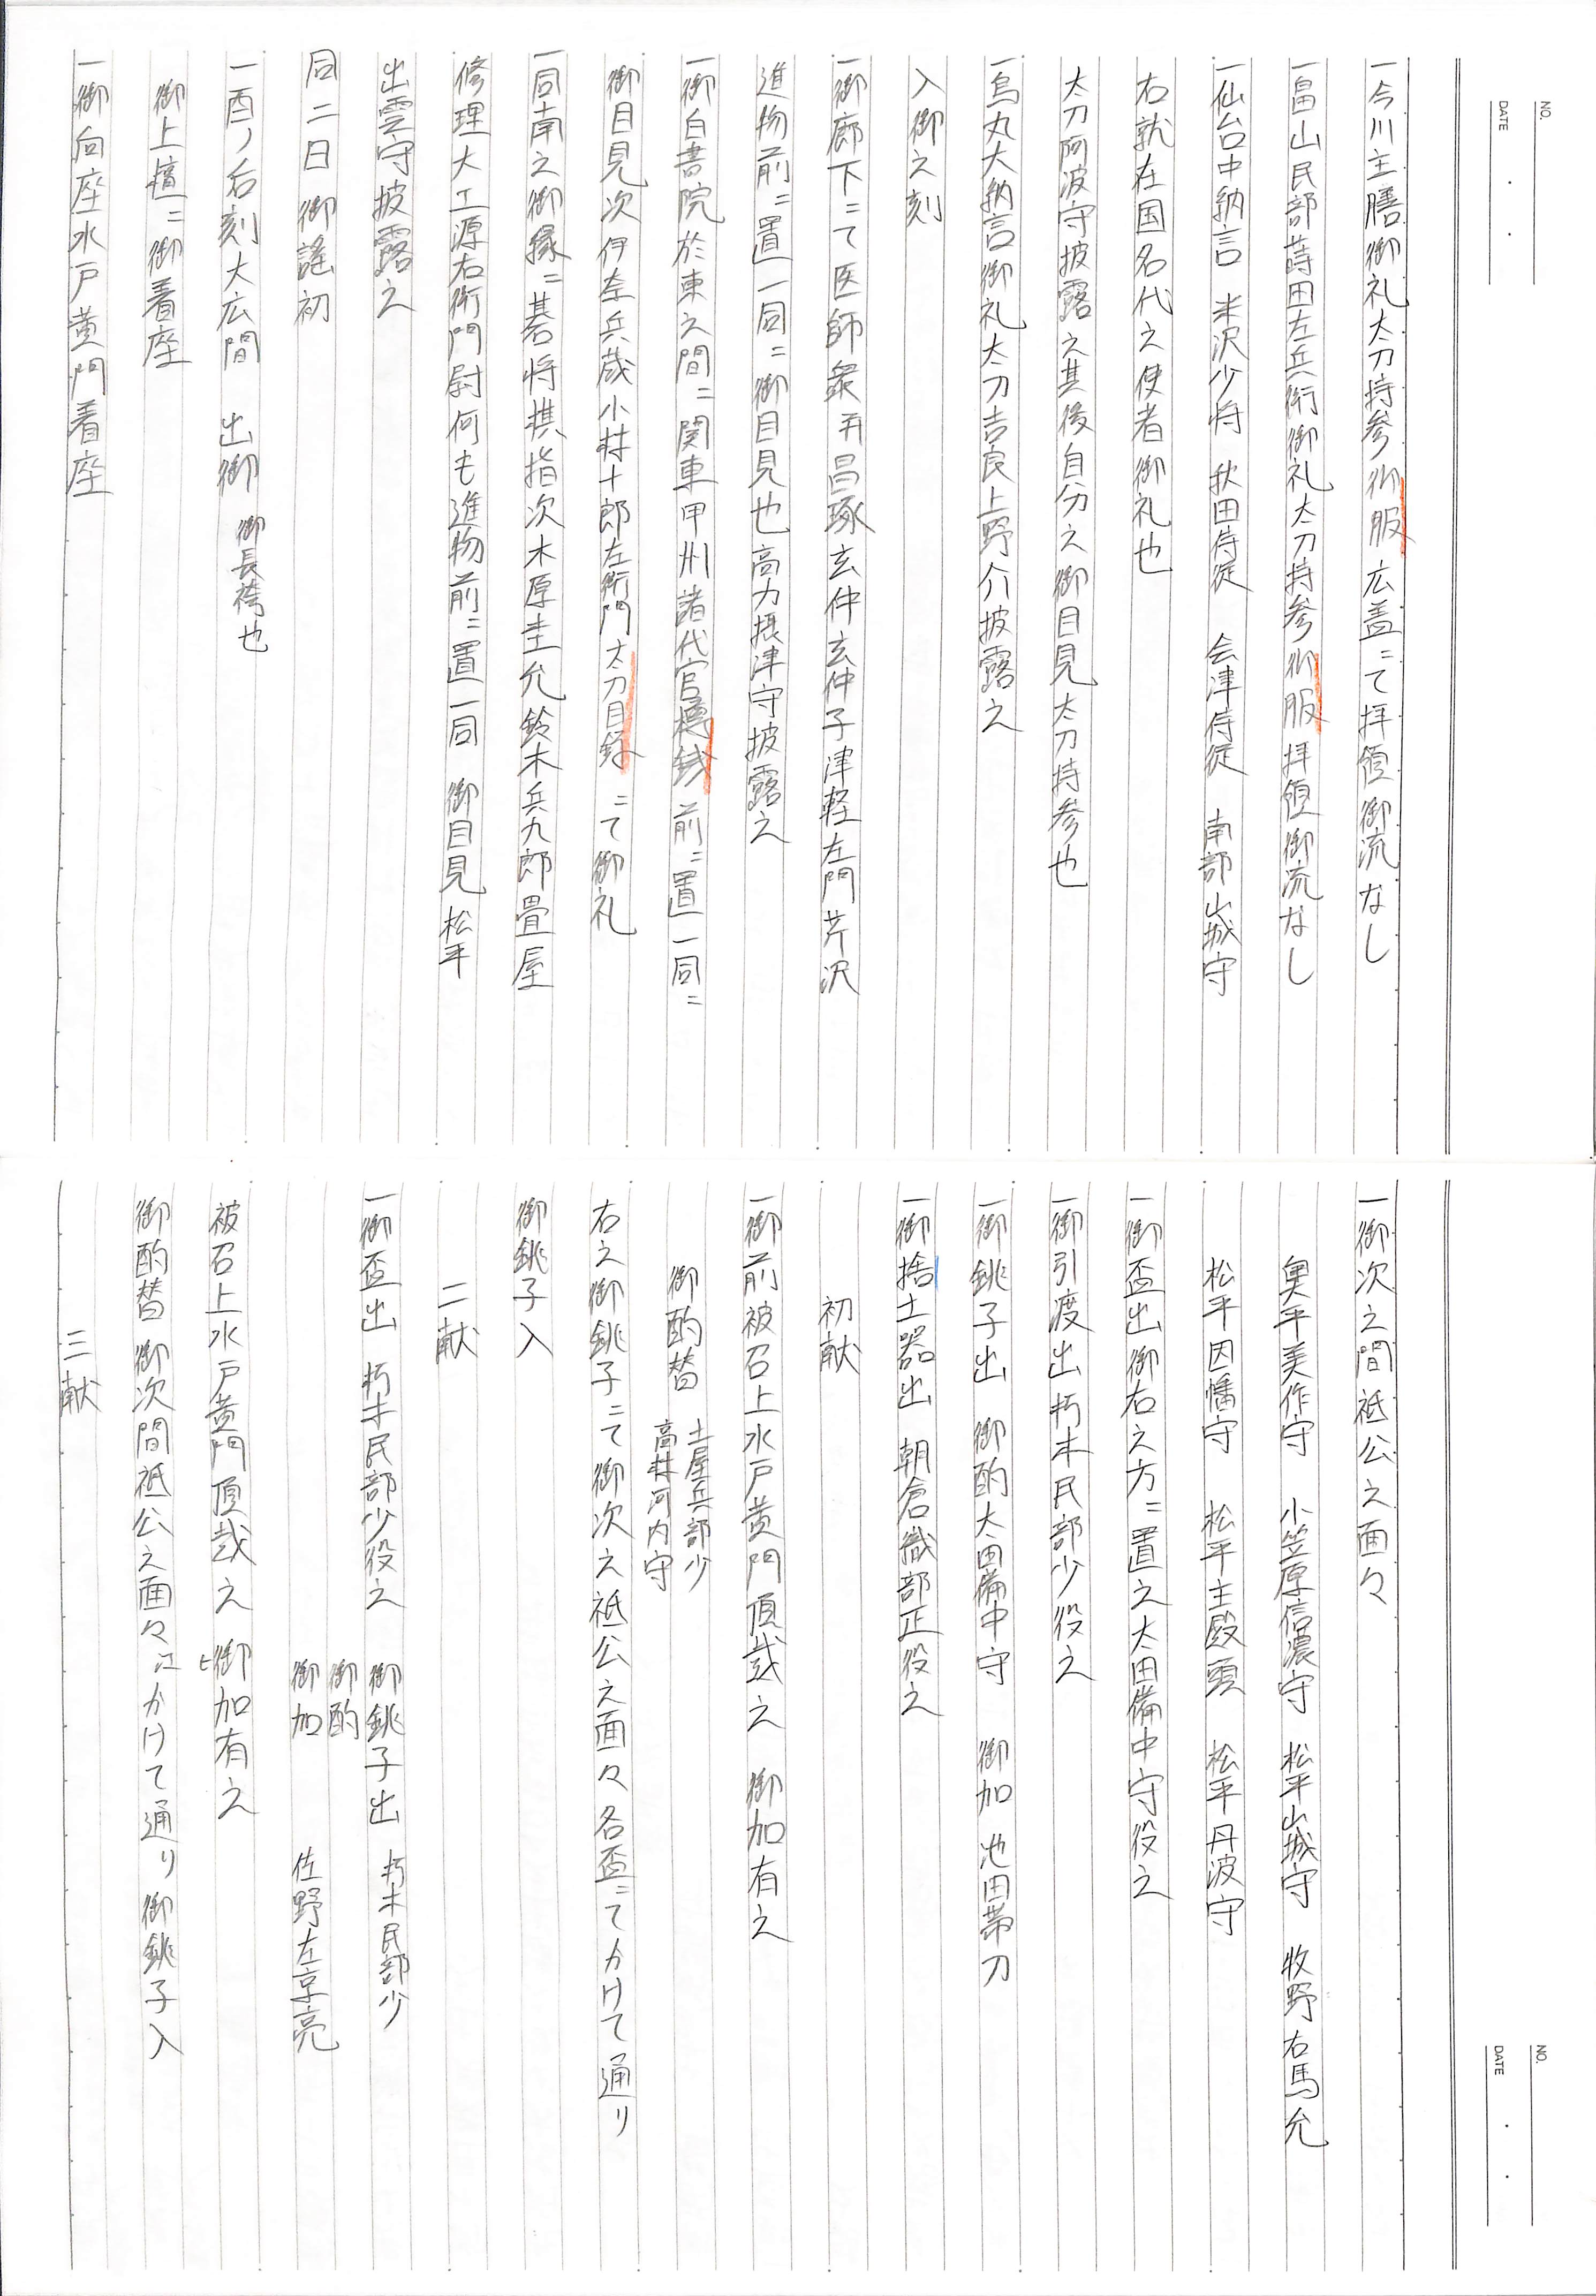 NO.
DATE
一今川主膳御礼太刀持参御服広蓋ニて拝領御流なし
一畠山民部蒔田左兵衛御礼太刀持参御服拝領御流なし
一仙台中納言 米沢少将 秋田侍従 会津侍従 南部山城守
右就在国名代之使者御礼也
太刀阿波守披露之其後自分之御目見太刀持参也
一烏丸大納言御礼太刀吉良上野介披露之
入御之刻
一御廊下ニて医師衆并昌琢玄仲玄仲子津軽左門芹沢
進物前ニ置一同ニ御目見也高力摂津守披露之
一御白書院於東之間ニ関東甲州諸代官 前ニ置一同ニ
御目見次伊奈兵蔵小林十郎左衛門太刀目録ニて御礼
一同南之御縁ニ碁将棋指次木原杢允鈴木兵九郎畳屋
修理大工源右衛門尉何も進物前ニ置一同 御目見 松平
出雲守披露之
同二日 御謡初
一酉ノ后刻大広間 出御 御長袴也
御上壇ニ御着座
一御向座水戸黄門着座
NO.
DATE
一御次之間祗公之面々
奥平美作守 小笠原信濃守 松平山城守 牧野右馬允
松平因幡守 松平主殿頭 松平丹波守
一御盃出御右之方ニ置之太田備中守役之
一御引渡出朽木民部少役之
一御銚子出 御酌太田備中守 御加 池田帯刀
一御捨土器出 朝倉織部正役之
初献
一御前被召上水戸黄門頂戴之 御加有之
御酌替 土屋兵部少
高林河内守
右之御銚子ニて御次之祗公之面々各盃ニてかけて通り
御銚子入
二献
一御盃出 朽木民部少役之 御銚子出 朽木民部少
御酌
御加 佐野左京亮
被召上水戸黄門頂戴之 御加有之
御酌替 御次間祗公之面々江かけて通り 御銚子入
三献